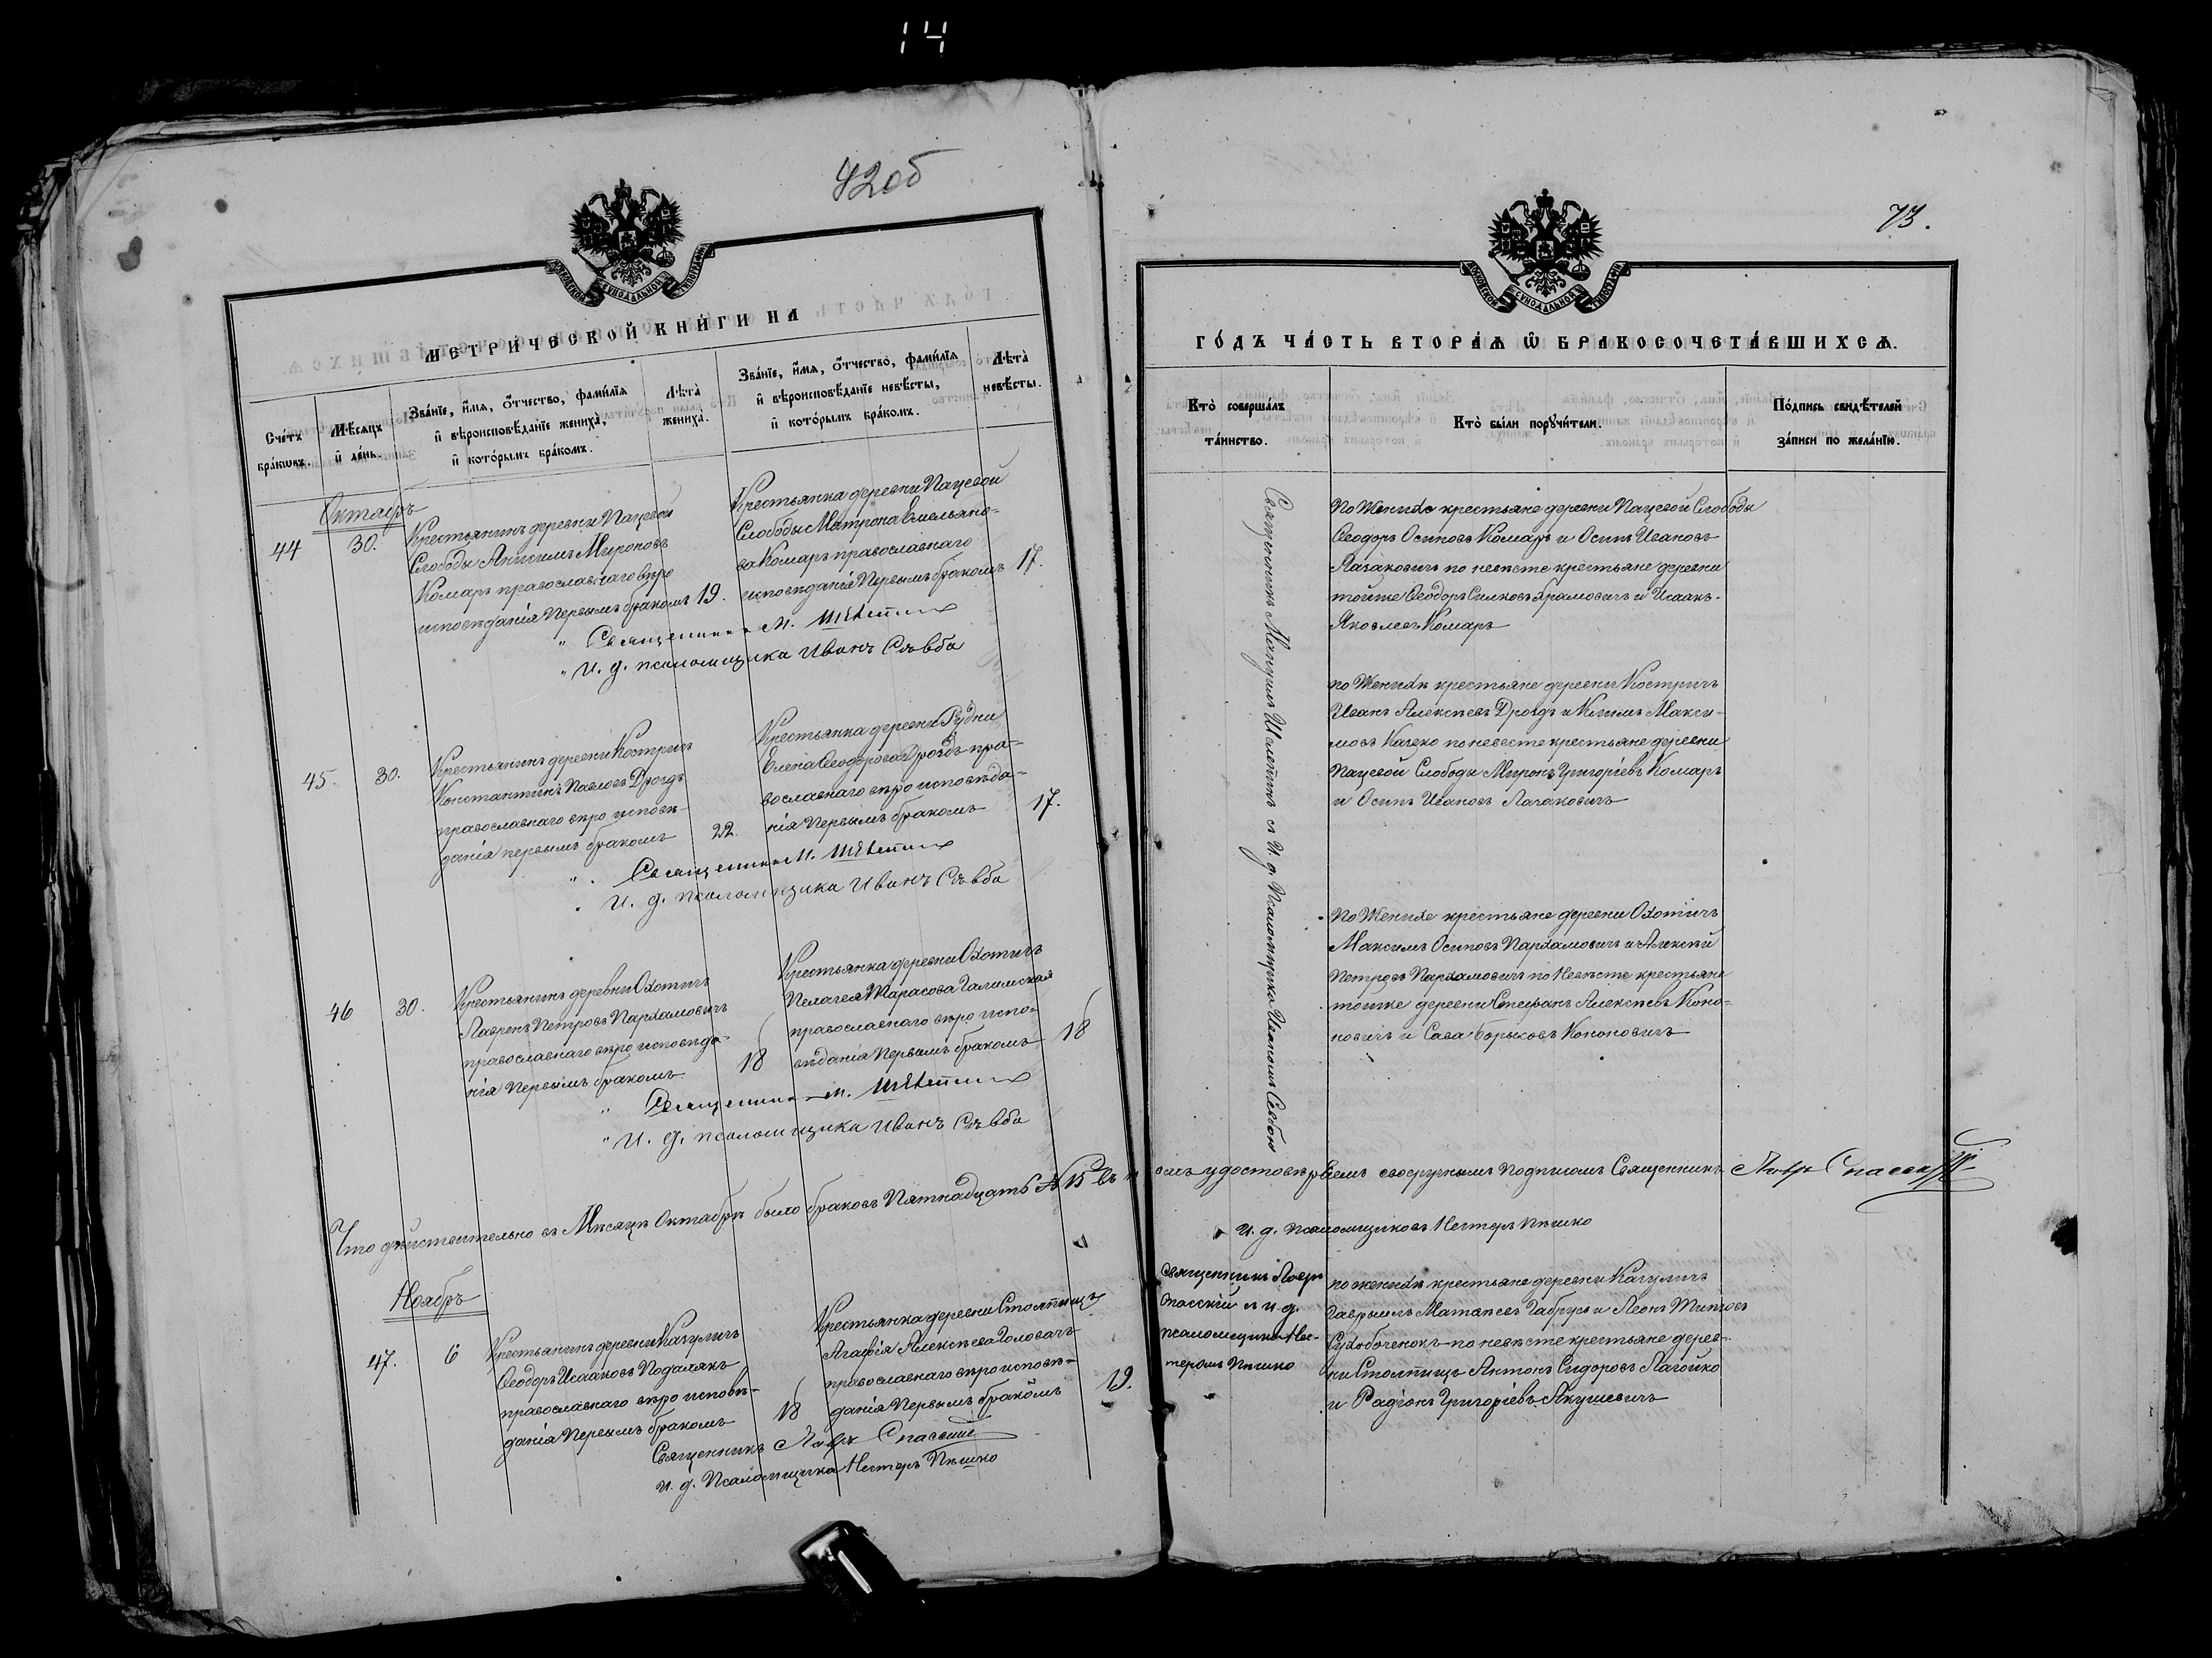 14
42об
МОСКОВСКОЙ СѴНОДАЛЬНОЙ ТИПОГРАФІИ
МЕТРИЧЕСКОЙ КНИГИ НА
Счетъ браковъ.
Мѣсяцъ и день.
Званіе, имя, отчество, фамилія
и вѣроисповѣданіе жениха,
и которымъ бракомъ.
Лѣта жениха.
Званіе, имя, отчество, фамилія
и вѣроисповѣданіе невѣсты,
и которымъ бракомъ.
Лѣта невѣсты.
Октябрь
44
30.
Крестьянинъ деревни Пацевой
Слободы Анисимъ Мироновъ
Комаръ православнаго вѣро
исповѣданія Первымъ бракомъ
19.
Крестьянка деревни Пацевой
Слободы Матрона Емельяно-
ва Комаръ православнаго
исповѣданія Первымъ бракомъ
17.
Священникъ М.
И. д. псаломщика Иванъ Сѣвба
45.
30.
Крестьянинъ деревни Костричъ
Константинъ Павловъ Дроздъ
православнаго вѣро исповѣ-
данія первымъ бракомъ
22.
Крестьянка деревни Рудни
Елена Ѳеодорова Дроздъ пра-
вославнаго вѣро исповѣда-
нія Первымъ бракомъ
17.
Священникъ М.
И. д. псаломщика Иванъ Сѣвба
46
30.
Крестьянинъ деревни Охотичъ
Лавренъ Петровъ Пархамовичъ
православнаго вѣро исповѣда-
нія Первымъ бракомъ.
18
Крестьянка деревни Охотичъ
Пелагея Тарасова Галимская
православнаго вѣро испо-
вѣданія Первымъ бракомъ
18
Священникъ М.
И. д. псаломщика Иванъ Сѣвба
Что дѣйствительно въ Мѣсяцѣ Октябрѣ было браковъ Пятнадцать № 15 въ
Ноябрь
47.
6
Крестьянинъ деревни Качуличъ
Ѳеодоръ Исааковъ Подалякъ
православнаго вѣро исповѣ-
данія Первымъ бракомъ
18
Крестьянка деревни Столпищъ
Агафія Алексѣева Головачъ
православнаго вѣро исповѣ-
данія Первымъ бракомъ
19.
Священникъ Лавръ Спасскій
и. д. Псаломщика Нестеръ Пѣшко
73.
МОСКОВСКОЙ СѴНОДАЛЬНОЙ ТИПОГРАФІИ
ГОДЪ ЧАСТЬ ВТОРАЯ Ѿ БРАКОСОЧЕТАВШИХСЯ.
Кто совершалъ
таинство.
Кто были поручители.
Подпись свидѣтелей
записи по желанію.
Священникъ и. д. Псаломщика Иваномъ Сѣвбою
По Женихѣ крестьяне деревни Пацевой Слободы
Ѳеодоръ Осиповъ Комаръ и Осипъ Ивановъ
Лачаковичъ по невѣсте крестьяне деревни
тойже Ѳеодоръ Силковъ Храмовичъ и Исаакъ-
Яковлевъ Комаръ
по Женихѣ крестьяне деревни Костричъ
Иванъ Алексѣевъ Дроздъ и Климъ Макси-
мовъ Качеко по невесте крестьяне деревни
Пацевой Слободы Миронъ Григорьевъ Комаръ
и Осипъ Ивановъ Лачаковичъ
По Женихе крестьяне деревни Охотичъ
Максимъ Осиповъ Пархамовичъ и Алексѣй
Петровъ Пархамовичъ по Невѣсте крестьяне
тойже деревни Стефанъ Алексѣевъ Коно-
новичъ и Сава Борисовъ Кононовичъ
омъ удостовѣряемъ своеручнымъ Подписомъ Священникъ Лавръ Спасскій
И. д. Псаломщиковъ Нестеръ Пѣшко
Священникъ Лавръ
Спасскій съ и. д.
псаломщика Нес-
теромъ Пѣшко
по женихѣ крестьяне деревни Качуличъ
Гаврыилъ Матвѣевъ Габрусъ и Леонъ Титовъ
Сухобоченокъ по невѣсте крестьяне дерев-
ни Столпищъ Антонъ Сидоровъ Лагойко
и Радіонъ Григорьевъ Якушевичъ